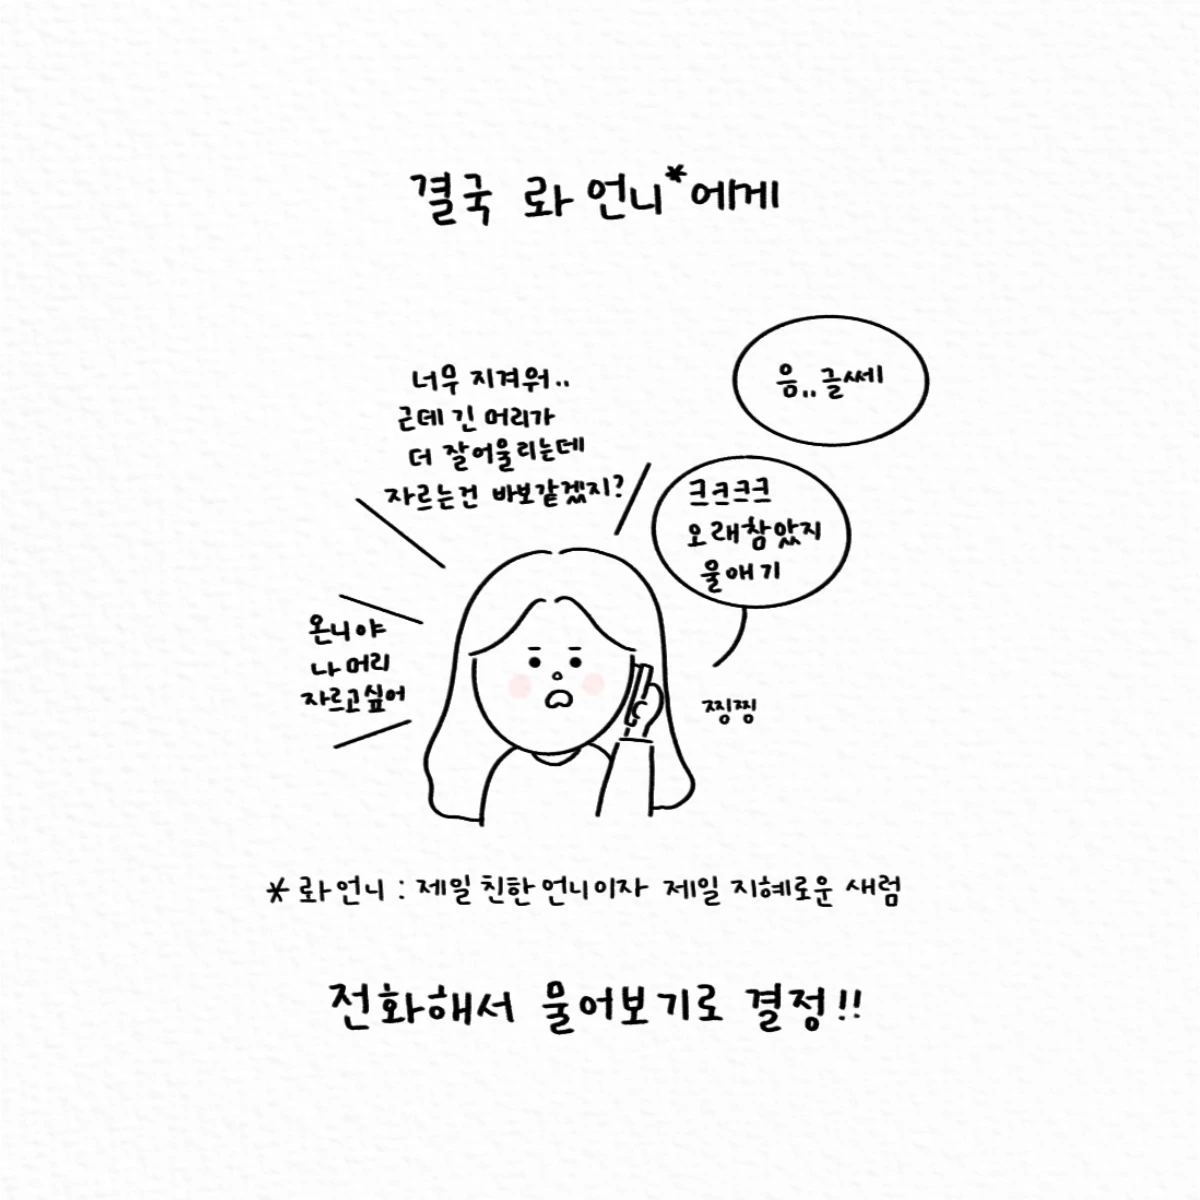 결국 롸 언니*에게
너무 지겨워..
근데 긴 머리가
더 잘어울리는데
자르는건 바보같겠지?
음..글쎄
크크크크
오래참았지
울애기
온니야
나 머리
자르고싶어
찡찡
* 롸언니 : 제일 친한 언니이자 제일 지혜로운 새럼
전화해서 물어보기로 결정!!